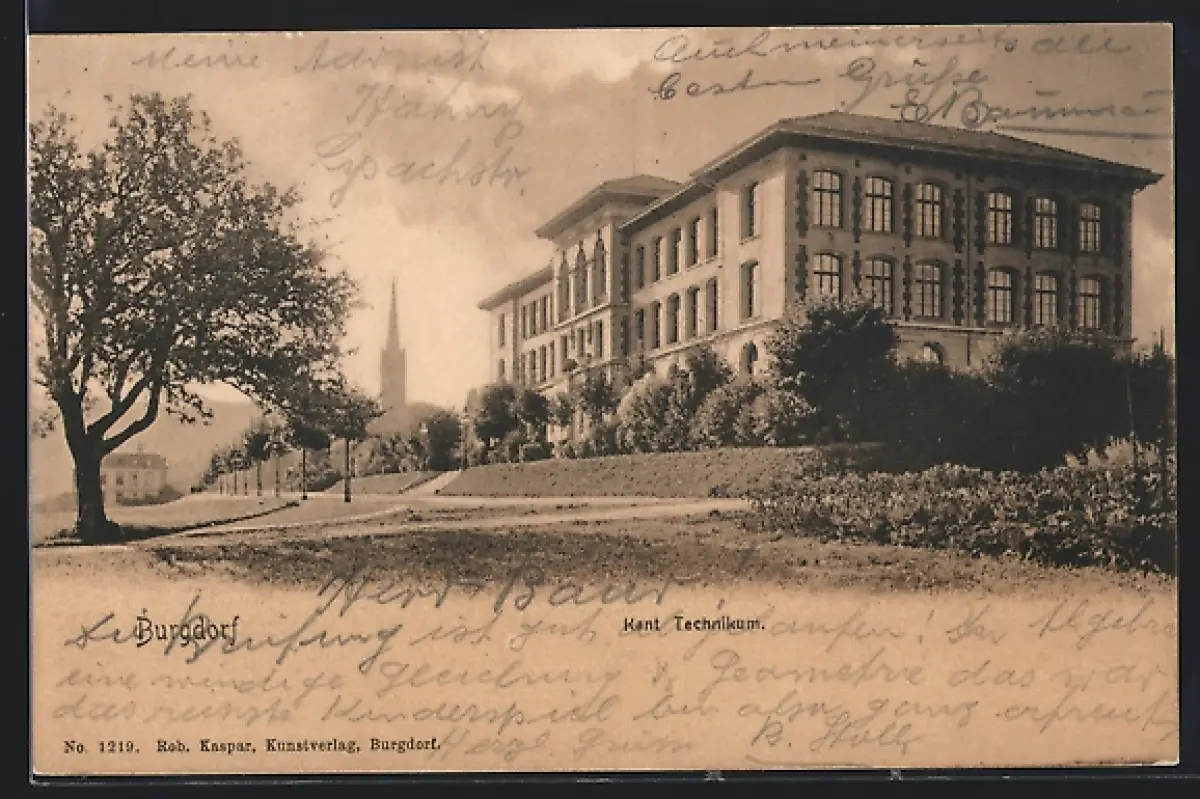 Meine Adr. ist
Hähny
Lyssachstr.
Auch meinerseits die
besten Grüße
E Baumau
Herr Baur!
Burgdorf
Kant Technikum.
Die Prüfung ist gut abgelaufen! In Algebra
eine windige Gleichung & Geometrie das war
das reinste Kinderspiel bin also ganz erfreut
No. 1219. Rob. Kaspar, Kunstverlag, Burgdorf.
Herzl. Gruss B. Stoll